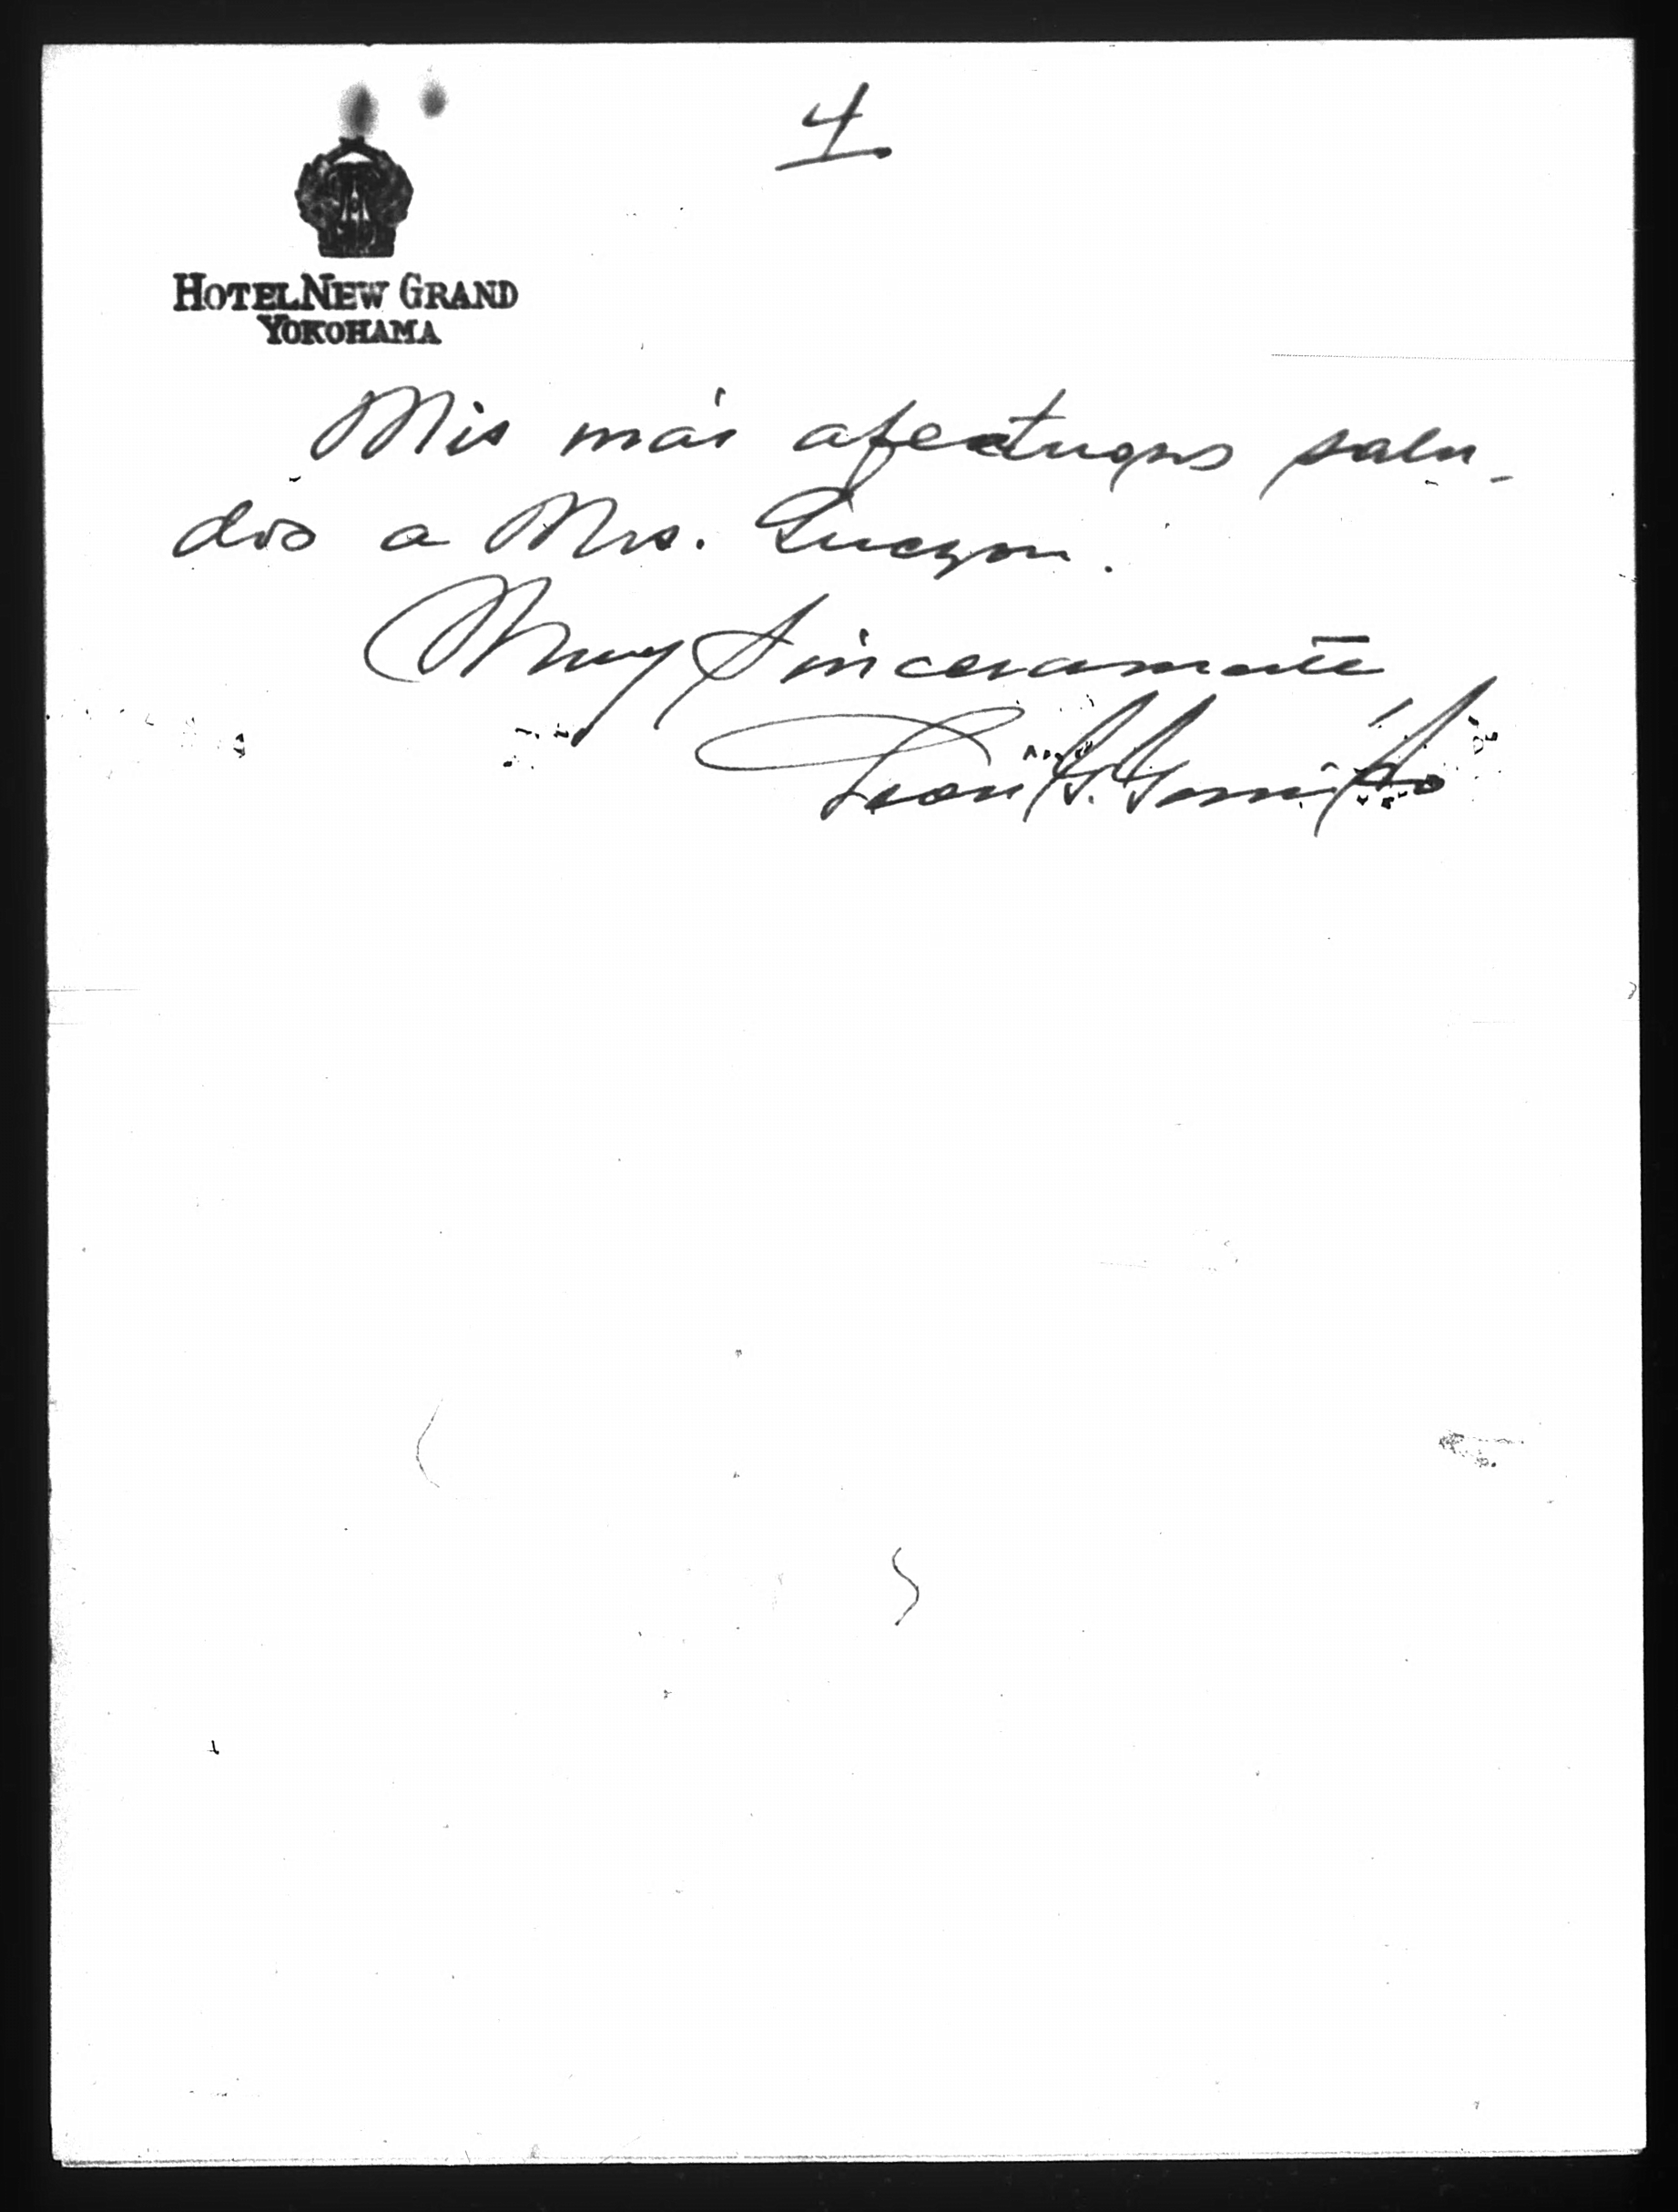 4
HOTEL NEW GRAND
YOKOHAMA
Mis más afectuosos salu-
dos a Mrs. Quezon.
Muy Sinceramente
Leon G.